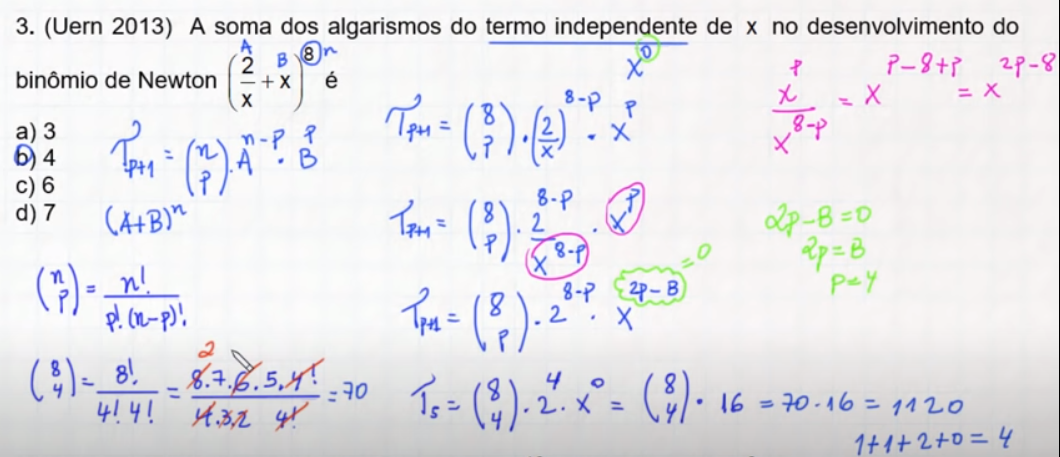 3. (Uern 2013) A soma dos algarismos do termo independente de x no desenvolvimento do
x^0
binômio de Newton (2/x + x)^8 é
A B n
a) 3
b) 4
c) 6
d) 7
T_{p+1} = (n p) . A^{n-p} . B^p
(A+B)^n
(n p) = n! / p! . (n-p)!
(8 4) = 8! / 4! 4! = 8.7.6.5.4! / 4.3.2 4! = 70
2
T_{p+1} = (8 p) . (2/x)^{8-p} . x^p
T_{p+1} = (8 p) . 2^{8-p} / x^{8-p} . x^p
T_{p+1} = (8 p) . 2^{8-p} . x^{2p-8} = 0
T_5 = (8 4) . 2^4 . x^0 = (8 4) . 16 = 70 . 16 = 1120
1+1+2+0 = 4
x^p / x^{8-p} = x^{p-8+p} = x^{2p-8}
2p-8=0
2p=8
p=4